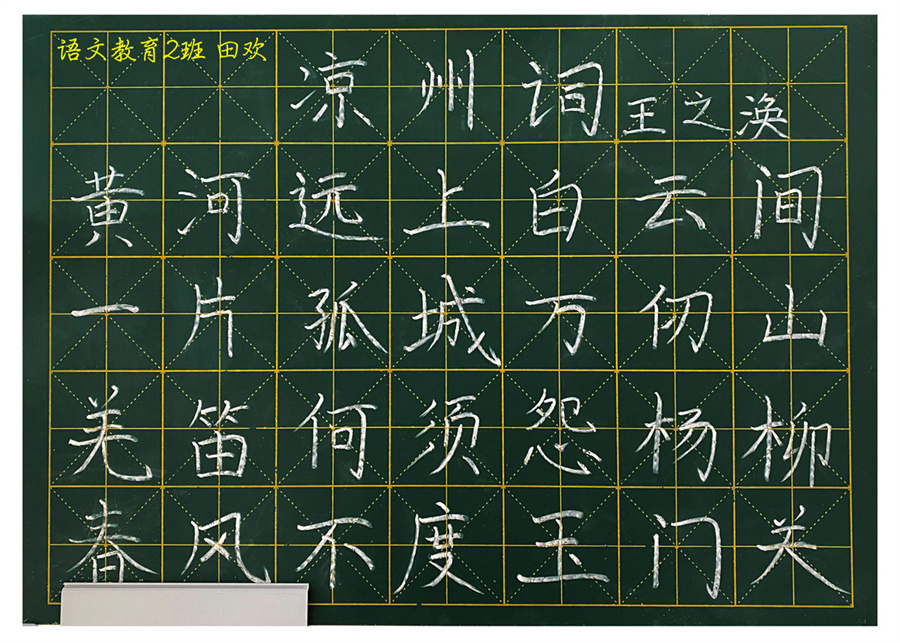 语文教育2班 田欢
凉州词 王之涣
黄河远上白云间
一片孤城万仞山
羌笛何须怨杨柳
春风不度玉门关